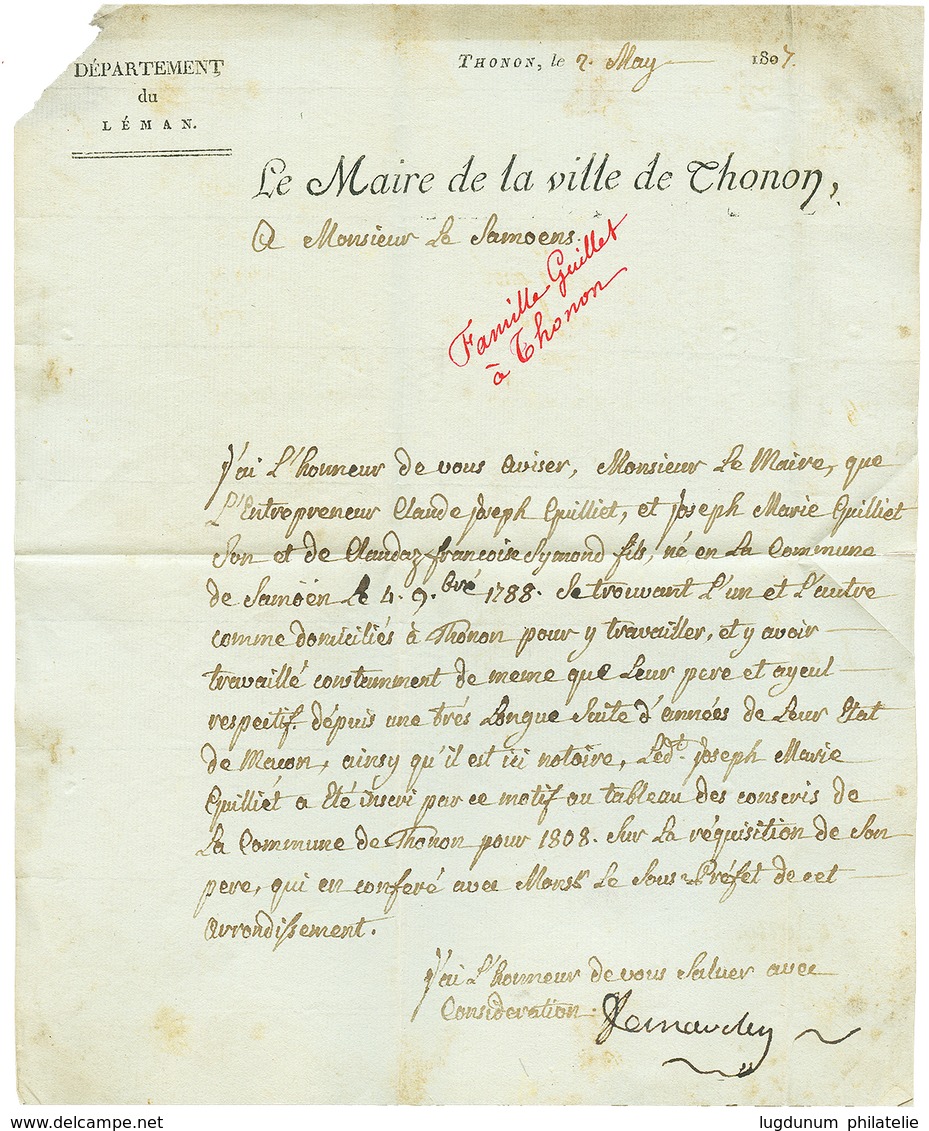 DÉPARTEMENT
du
LÉMAN.
THONON, le 2. May 1807.
Le Maire de la ville de Thonon,
A Monsieur Le Samoens.
Famille Guillet
à Thonon
J'ai L'honneur de vous aviser, Monsieur Le Maire, que
L'Entrepreneur Claude joseph Guilliet, et joseph Marie Guilliet
Son et de Claudaz francoise Symond fils, né en La Commune
de Samöen Le 4. 9.bré 1788. Se trouvant L'un et L'autre
comme domiciliés à Thonon pour y travailler, et y avoir
travaillé constamment de meme que Leur pere et ayeul
respectif dépuis une trés Longue Suite d'années de Leur Etat
de Macon, ainsy qu'il est ici notoire, Led.t joseph Marie
Guilliét a Eté inscri par ce motif au tableau des conscris de
La Commune de Thonon pour 1808. Sur La réquisition de Son
pere, qui en conferé avec Monsr. Le Sous-Préfet de cet
arrondissement.
J'ai L'honneur de vous Saluer avec
Consideration.
lugdunum philatelie